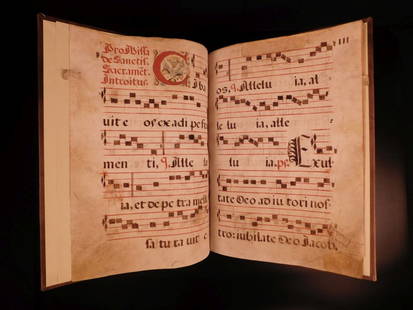 Pro Missa
de Sanctis.
Sacramēt.
Introitus.
Ciba
uit e os ex adi pe fru
men ti, Alle lu
ia, et de pe tra melle
sa tu ra uit e
VIII
os, Allelu ia, al
le lu ia, alle
lu ia. ps. Exul
tate Deo ad iu to ri nos
tro: iubilate Deo Jacob